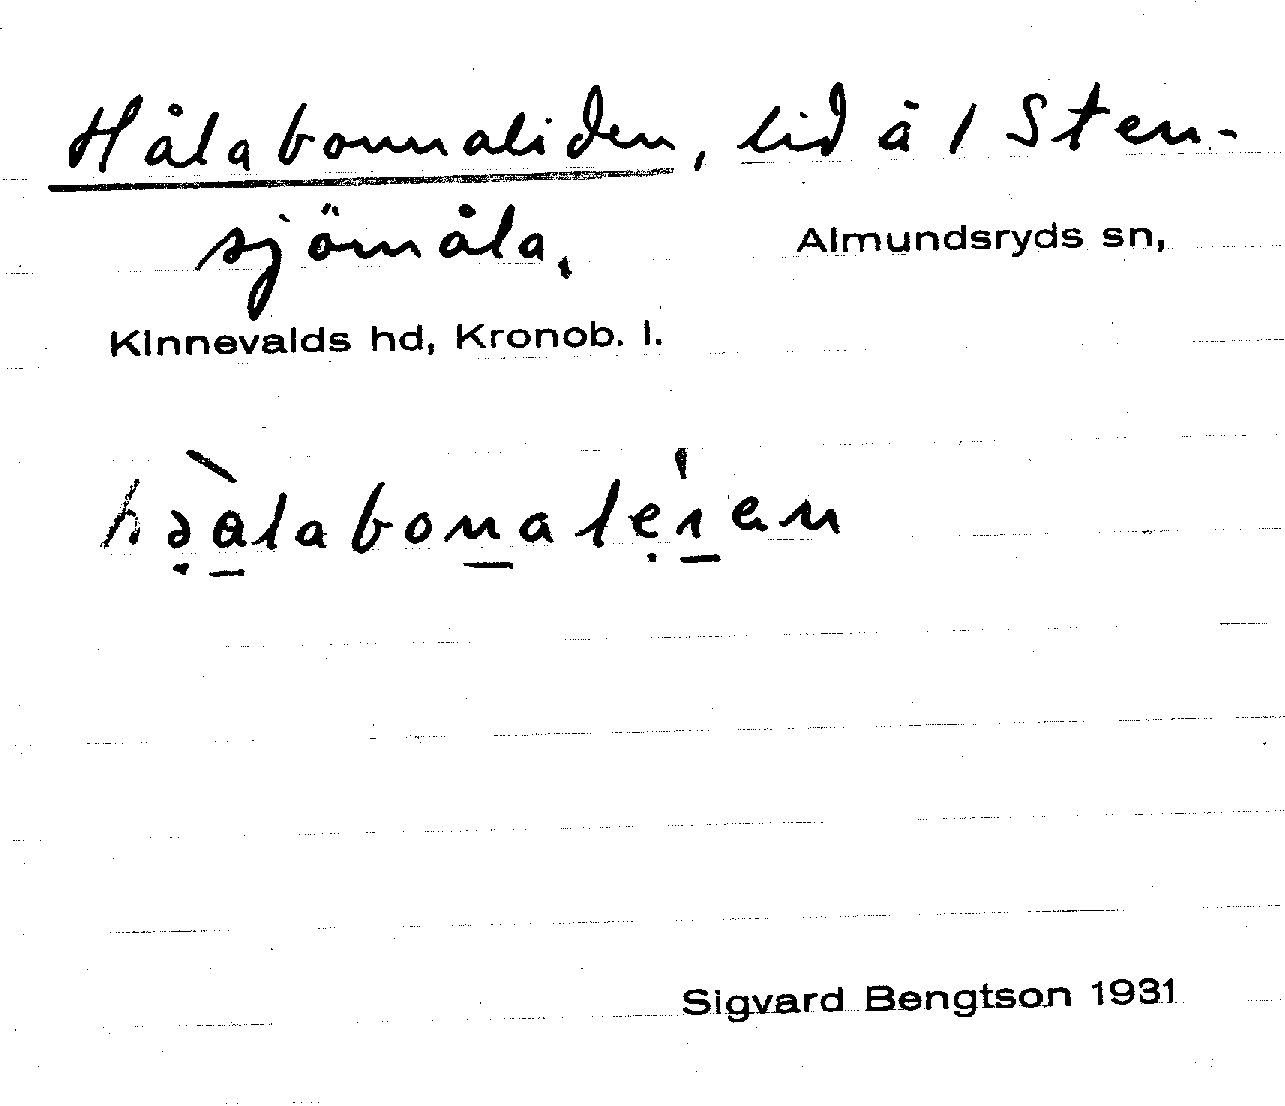 Hålabonnaliden, lid å 1 Sten-
sjömåla, Almundsryds sn,
Kinnevalds hd, Kronob. l.
Sigvard Bengtson 1931